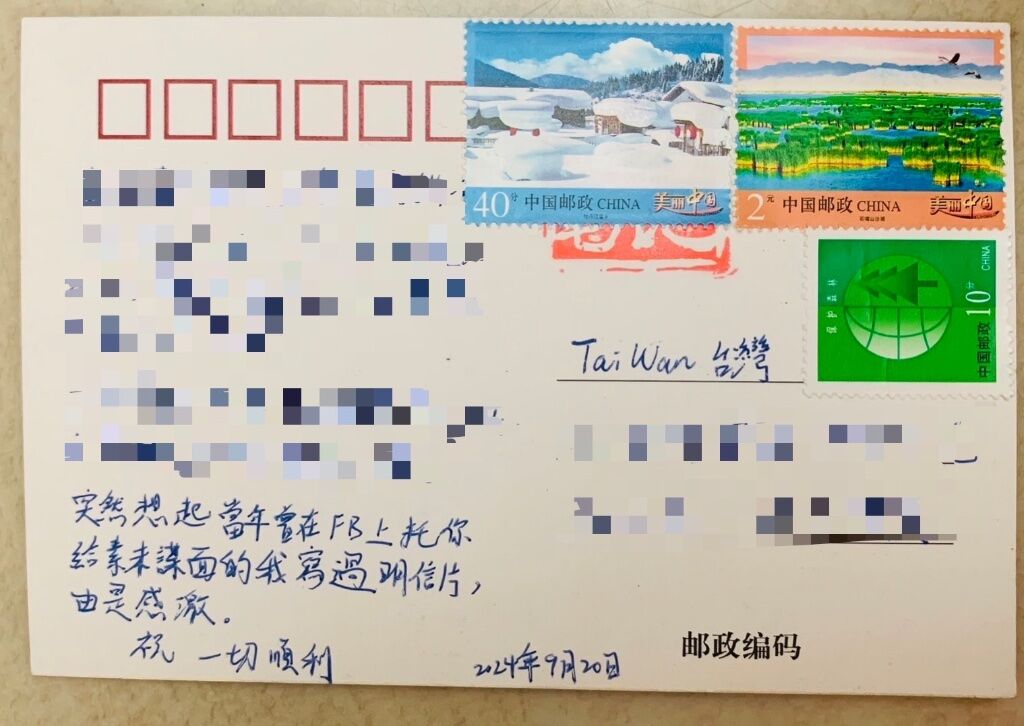 40分 中国邮政 CHINA 美丽中国
2元 中国邮政 CHINA 美丽中国
保护森林
中国邮政 10分 CHINA
TaiWan 台灣
突然想起當年曾在FB上托你
給素未謀面的我寫過明信片，
由是感激。
祝 一切順利
2024年9月20日
邮政编码